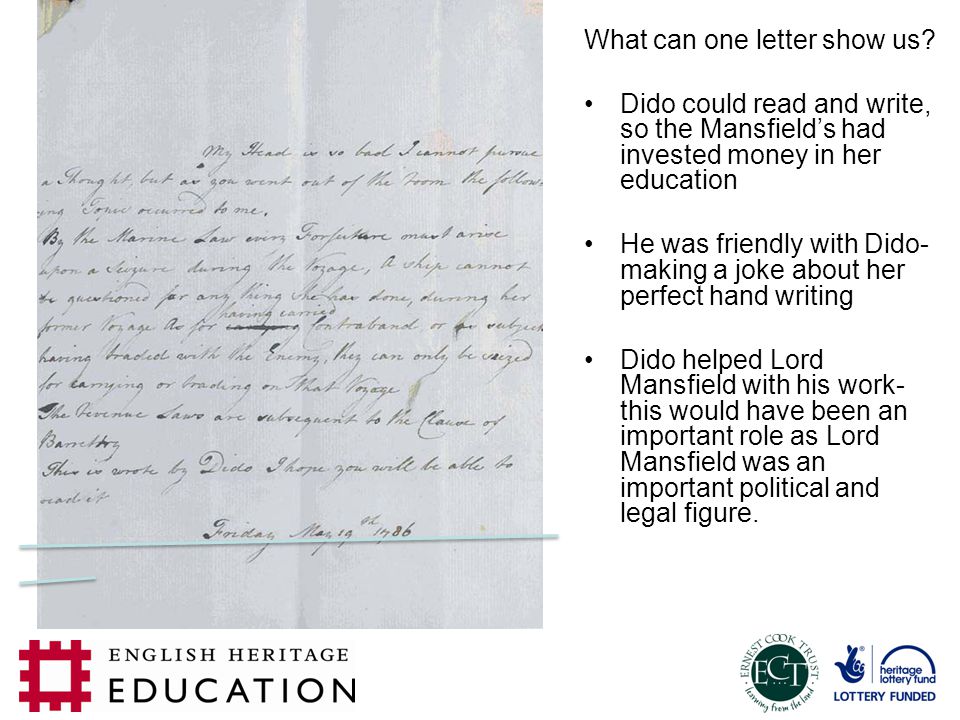 My Head is so bad I cannot pursue
a Thought, but as you went out of the room the follow-
ing Topic occurred to me.
By the Marine Law every Forfeiture must arise
upon a Seizure during the Voyage, A ship cannot
be questioned for any thing she has done, during her
having carried
former Voyage As for contraband or as subject
having traded with the Enemy, they can only be seized
for carrying or trading on that Voyage
The Revenue Laws are subsequent to the Clause of
Barrettry
This is wrote by Dido I hope you will be able to
read it
Friday May 19 1786
What can one letter show us?
• Dido could read and write,
so the Mansfield’s had
invested money in her
education
• He was friendly with Dido-
making a joke about her
perfect hand writing
• Dido helped Lord
Mansfield with his work-
this would have been an
important role as Lord
Mansfield was an
important political and
legal figure.
ENGLISH HERITAGE
EDUCATION
ERNEST COOK TRUST
ECT
learning from the land
heritage
lottery fund
LOTTERY FUNDED